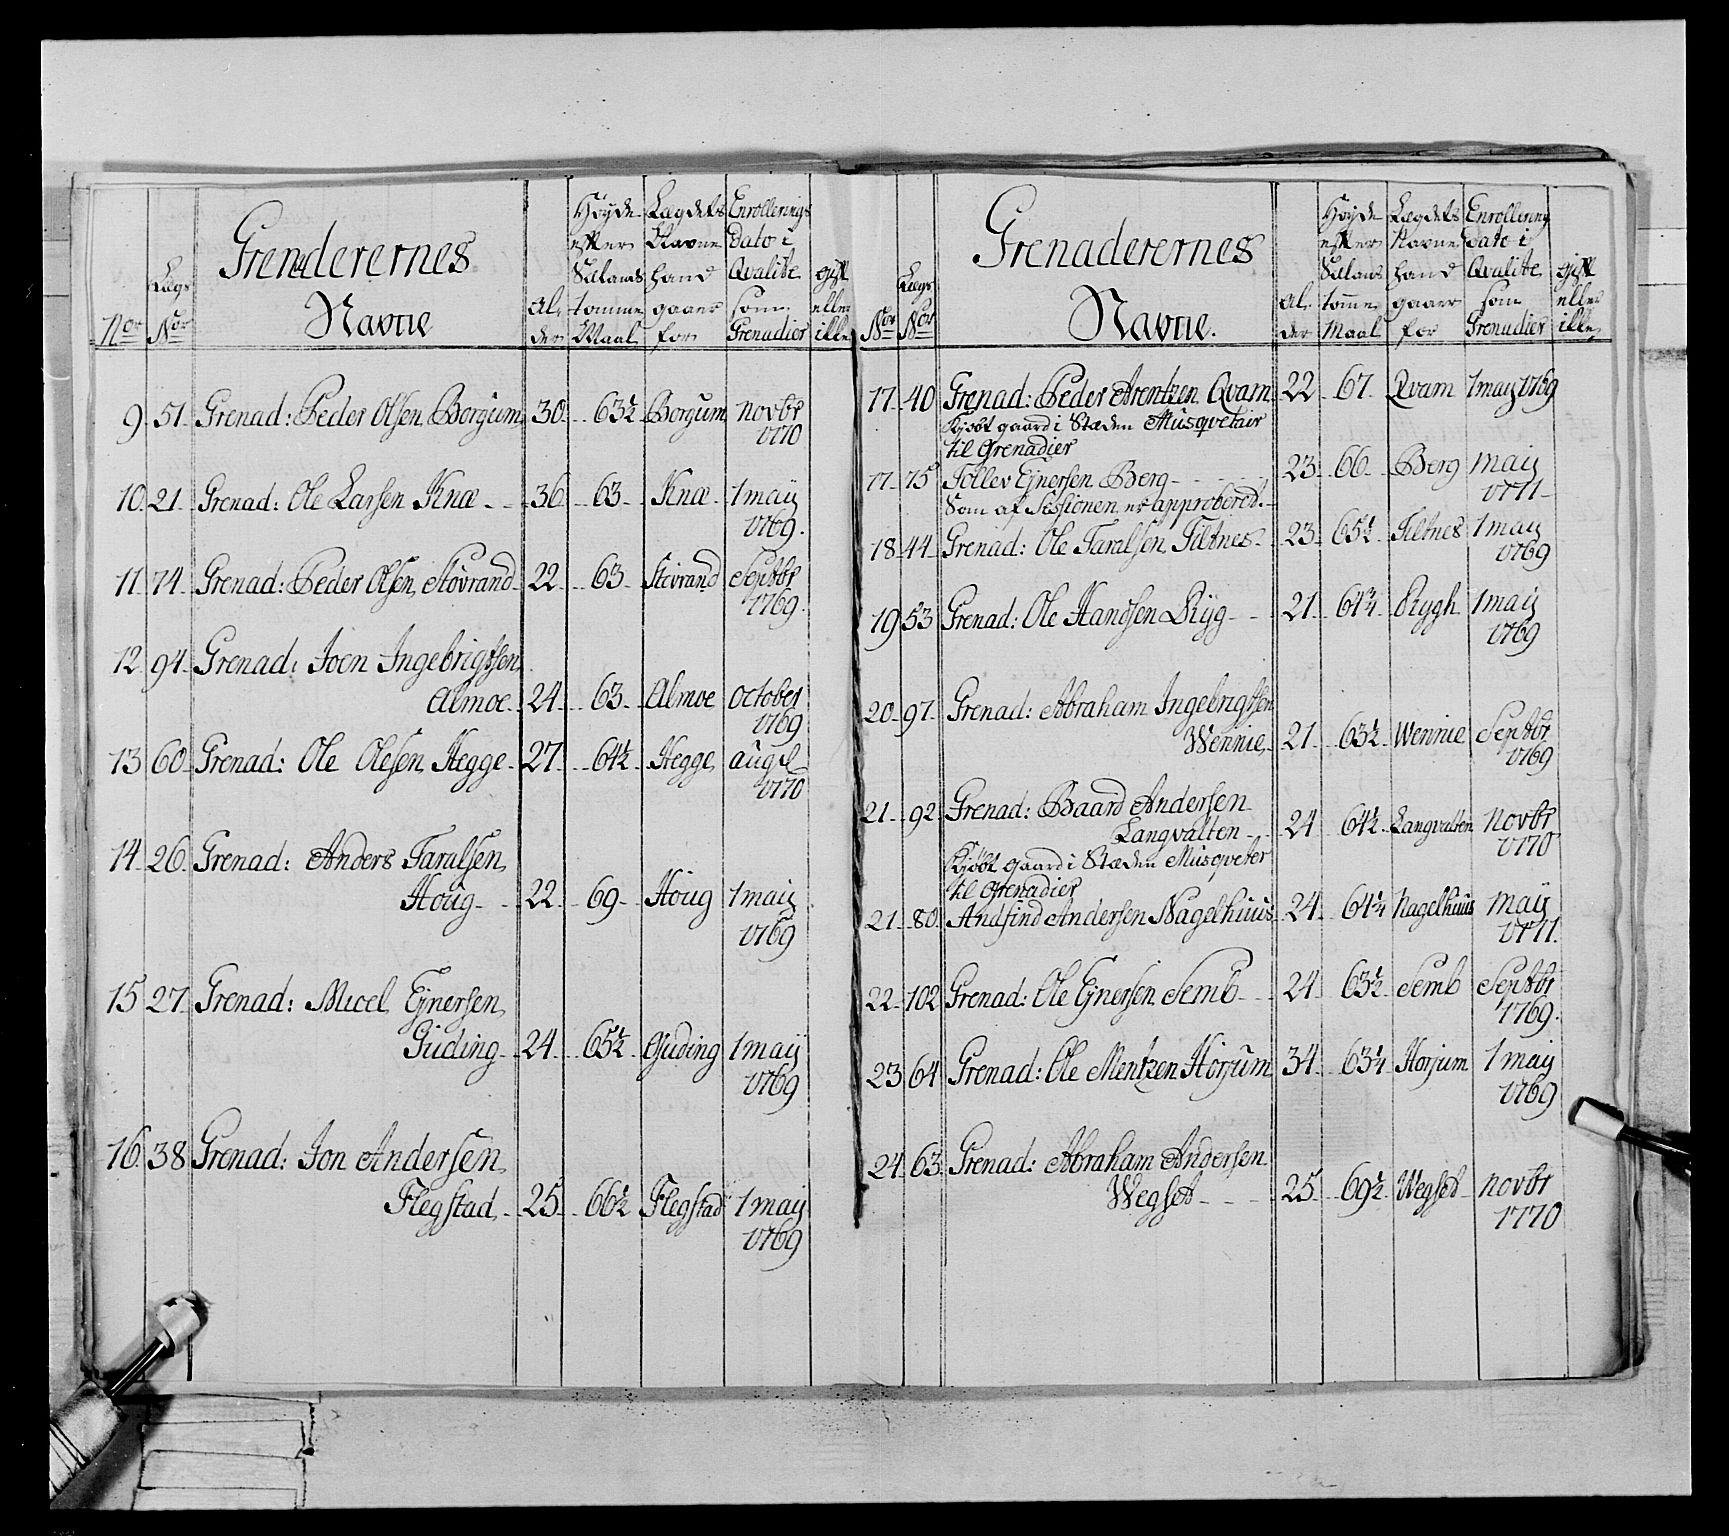 Nor Lægs Nor Grenaderernes Navne Alder Høyde efter Sælands tomme Maal Lægdets Navne hand gaaer for Enrollerings Dato i Qvalite som Grenadier gift eller ikke
9. 51. Grenad: Peder Olsen Borgum 30. 63½ Borgum novbr
1770
10. 21. Grenad: Ole Larsen Knæ 36. 63. Knæ 1 maij
1769.
11. 74. Grenad: Peder Olsen Støvrand 22. 63. Stövrand Septbr
1769.
12. 94. Grenad: Joen Ingebrigtsen
Almoe. 24. 63. Almoe October
1769
13 60. Grenad: Ole Olesen Hegge. 27. 64½ Hegge aug
1770
14. 26. Grenad: Anders Taralsen
Houg 22. 69. Houg 1 maij
1769
15 27. Grenad: Micel Ejnersen
Guding 24. 65½ Guding 1 maij
1769
16. 38 Grenad: Jon Andersen
Flegstad 25. 66½ Flegstad 1 maij
1769
Nor Lægs Nor Grenaderernes Navne. Alder Høyde efter Sælans tomme Maal Lægdets Navne hand gaaer for Enrollering dato i Qvalite som Grenadier gift eller ikke
17. 40 Grenad: Peder Arentzen Qvam 22 67. Qvam 1 maij 1769
Kjøbt gaard i Stæden Musqvetair
til Grenadier
17. 75 Tollev Ejnersen Berg 23. 66. Berg maij
1771
Som af Sessionen er approbered.
18. 44. Grenad: Ole Taralsen Tiltnes 23. 65½ Tiltnes 1 maij
1769
19 53 Grenad: Ole Handsen Ryg 21. 64¾ Rygh 1 maij
1769
20. 97. Grenad: Abraham Ingebrigtsen
Wennie 21. 63½ Wennie Septbr
1769
21. 92. Grenad: Baard Andersen
Langvalten 24 64½ Langvalten novbr
1770
Kjöbt gaard i Stæden Musqveter
til Grenadier
21. 80. Andfind Andersen Nagelhuus 24. 64¼ Nagelhuus maij
1771.
22. 102 Grenad: Ole Ejnersen Semb 24. 63½ Semb Septbr
1769.
23 64 Grenad: Ole Mentzen Horjum 34 63¼ Horjum 1 maij
1769
24. 63 Grenad: Abraham Andersen
Wegset 25. 69½ Wegset novbr
1770